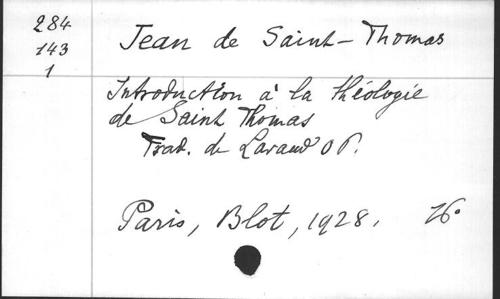 284
143
1
Jean de Saint-Thomas
Introduction à la théologie
de Saint Thomas
Trad. de Lavaud O P.
Paris, Blot, 1928. 16°